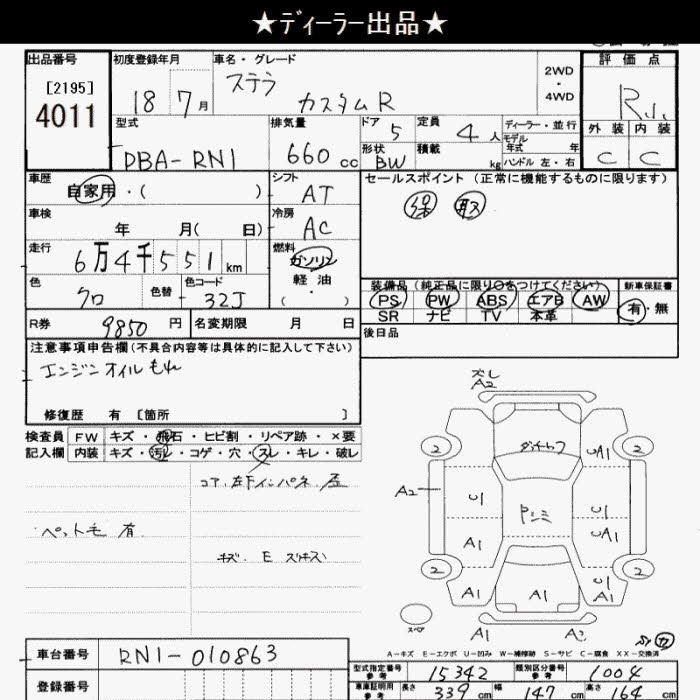 ★ディーラー出品★
出品番号 初度登録年月 車名・グレード 評価点
[2195] ステラ 2WD
・
4WD
4011 18 7月 カスタムR R
外装 内装
C C
型式 排気量 ドア 定員 ディーラー・並行
DBA-RN1 660cc 5 4人 モデル 年式 年
形状 BW 積載 kg ハンドル 左・右
車歴 シフト セールスポイント (正常に機能するものに限ります)
自家用・( ) AT 保 取
車検 冷房
年 月( 日) AC
走行 燃料
6万4千551km ガソリン
軽油
( )
装備品 (純正品に限り○をつけてください) 新車保証書
PS PW ABS エアB AW 有・無
SR ナビ TV 本革
色 色替 色コード
クロ 32J
後日品
R券 9850円 名変期限 月 日
注意事項申告欄(不具合内容等は具体的に記入して下さい)
エンジンオイルもれ
修復歴 有 [箇所 ]
検査員 FW キズ・飛石・ヒビ割・リペア跡・×要
記入欄 内装 キズ・汚レ・コゲ・穴・スレ・キレ・破レ
コア、左下インパネ 歪
ペット毛 有
キズ、E
ズレ
A2
2 2
UA1
A2
U1 U1
A1 UA1
2 2
A1 A1 U1
A1
スペア
A1 A2
A-キズ E-エクボ U-凹み W-補修跡 S-サビ C-腐食 XX-交換済
車台番号 RN1-010863
型式指定番号 参考 15342 類別区分番号 参考 1004
登録番号 車庫証明用 参考 長さ 339cm 幅 147cm 高さ 164cm